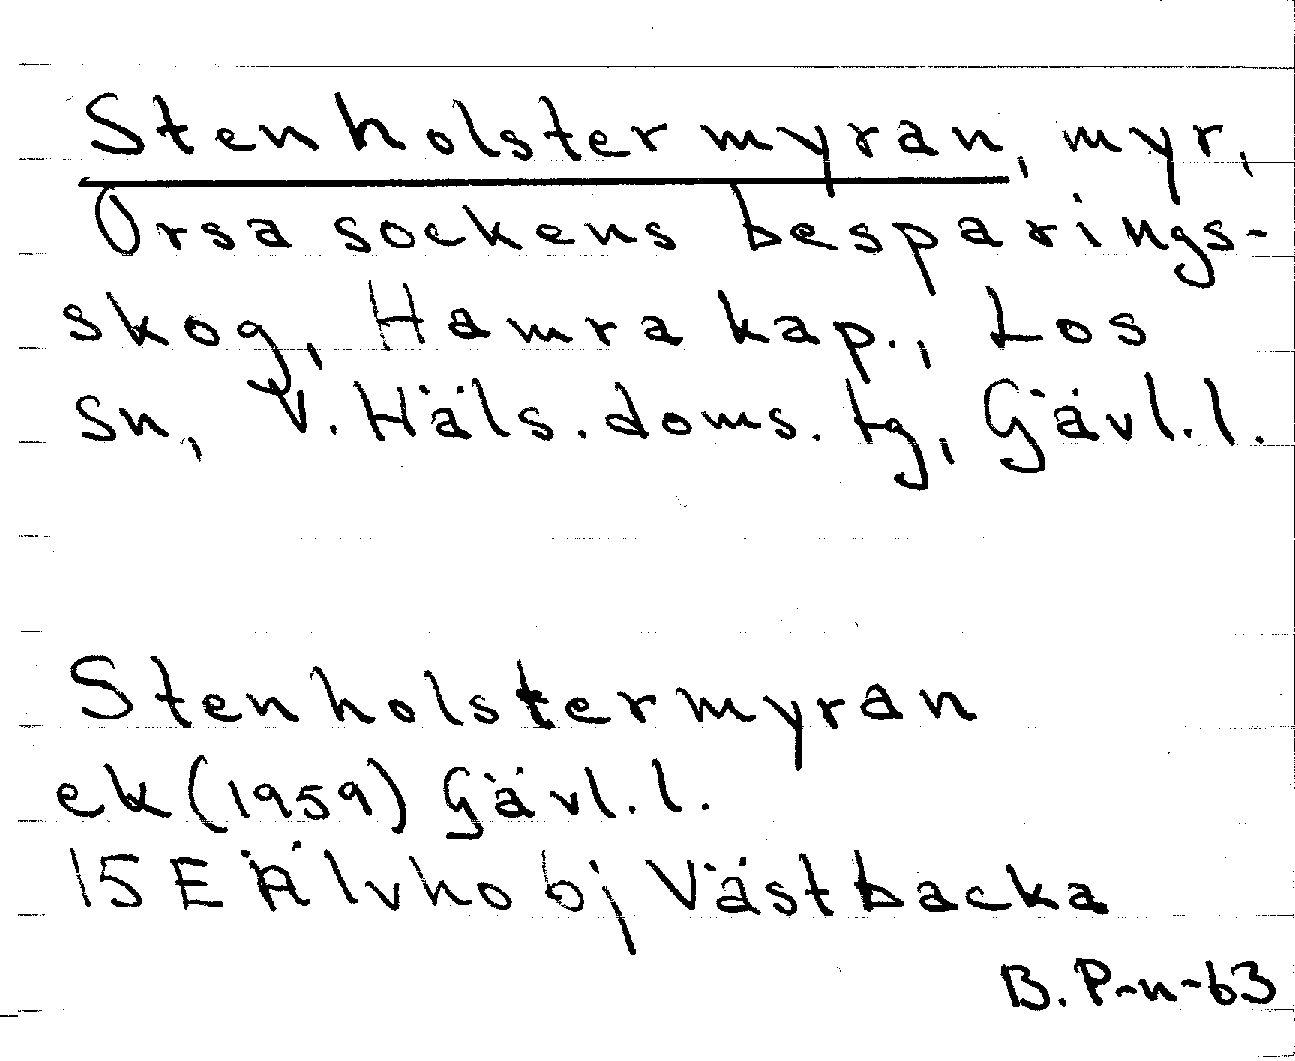 Stenholstermyran, myr,
Orsa sockens besparings-
skog, Hamra kap., Los
sn, V. Häls. doms. tg, Gävl.l.
Stenholstermyran
ek (1959) Gävl.l.
15E Älvho bj Västbacka
B. P-n-63